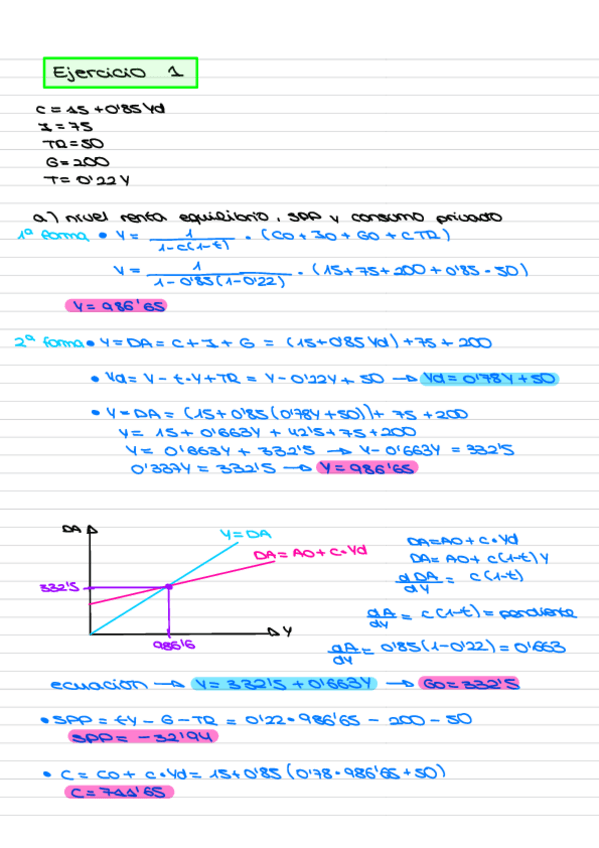 Ejercicio 1
C = 15 + 0'85 Yd
I = 75
TR = 50
G = 200
T = 0'22 Y
a) nivel renta equilibrio, SPP y consumo privado
1ª forma • Y = 1 / 1-c(1-t) · (C0 + I0 + G0 + cTR)
Y = 1 / 1 - 0'85(1-0'22) · (15 + 75 + 200 + 0'85 · 50)
Y = 986'65
2ª forma • Y = DA = C + I + G = (15 + 0'85 Yd) + 75 + 200
• Yd = Y - t·Y + TR = Y - 0'22Y + 50 → Yd = 0'78Y + 50
• Y = DA = (15 + 0'85 (0'78Y + 50)) + 75 + 200
Y = 15 + 0'663Y + 42'5 + 75 + 200
Y = 0'663Y + 332'5 → Y - 0'663Y = 332'5
0'337Y = 332'5 → Y = 986'65
DA
Y = DA
DA = A0 + c·Yd
332'5
986'6
Y
DA = A0 + c·Yd
DA = A0 + c(1-t)Y
dDA / dY = c(1-t)
dA / dY = c(1-t) = pendiente
dA / dY = 0'85(1-0'22) = 0'663
ecuación → Y = 332'5 + 0'663Y → G0 = 332'5
• SPP = tY - G - TR = 0'22 · 986'65 - 200 - 50
SPP = -32'94
• C = C0 + c·Yd = 15 + 0'85 (0'78 · 986'65 + 50)
C = 711'65